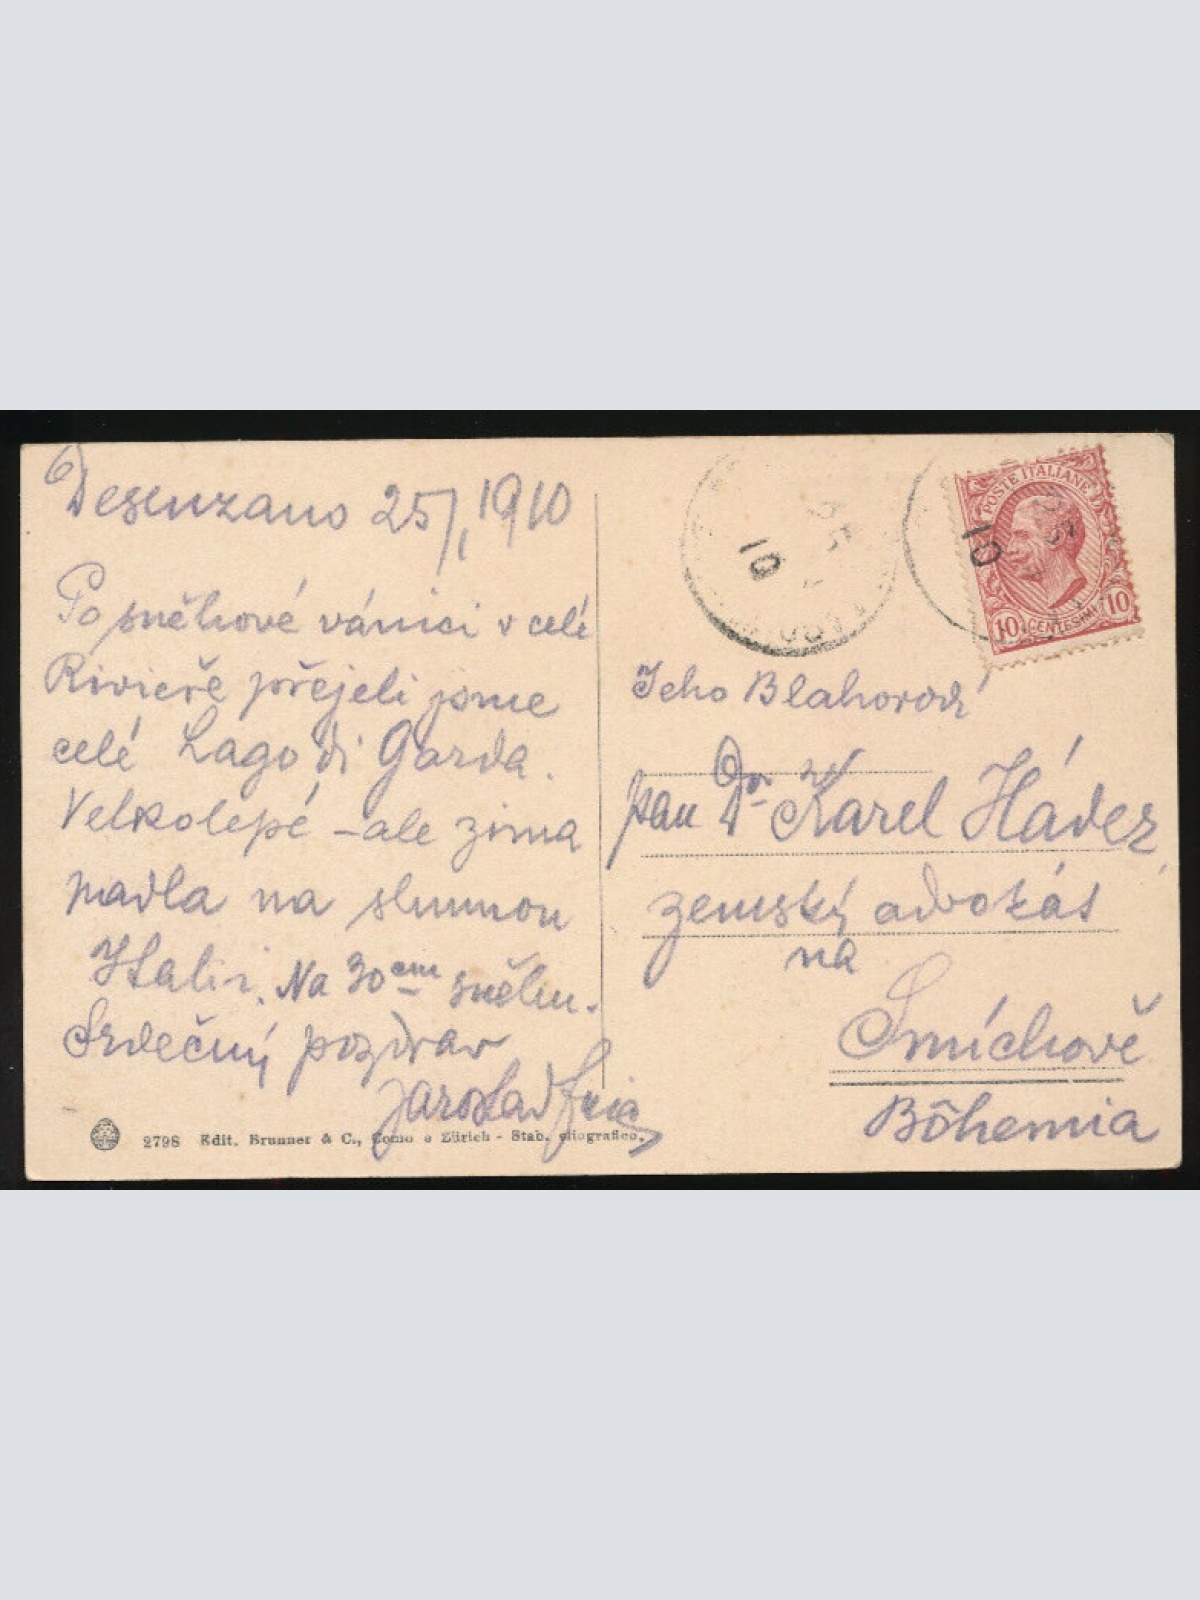 Desenzano 25/1 1910
Po sněhové vánici v celé
Rivieře přejeli jsme
celé Lago di Garda.
Velkolepé – ale zima
padla na slunnou
Italii. Na 30 cm sněhu.
Srdečný pozdrav
Jaroslav
2798 Edit. Brunner & C., Como e Zürich - Stab. eliografico.
POSTE ITALIANE
10 CENTESIMI 10
10
10
Jeho Blahorodí
pan Dr Karel Hádez
zemský advokát
na
Smíchově
Bôhemia